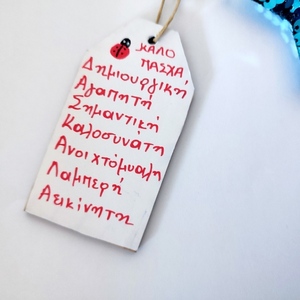 ΚΑΛΟ
ΠΑΣΧΑ
Δημιουργική
Αγαπητή
Σημαντική
Καλοσυνάτη
Ανοιχτόμυαλη
Λαμπερή
Αεικίνητη